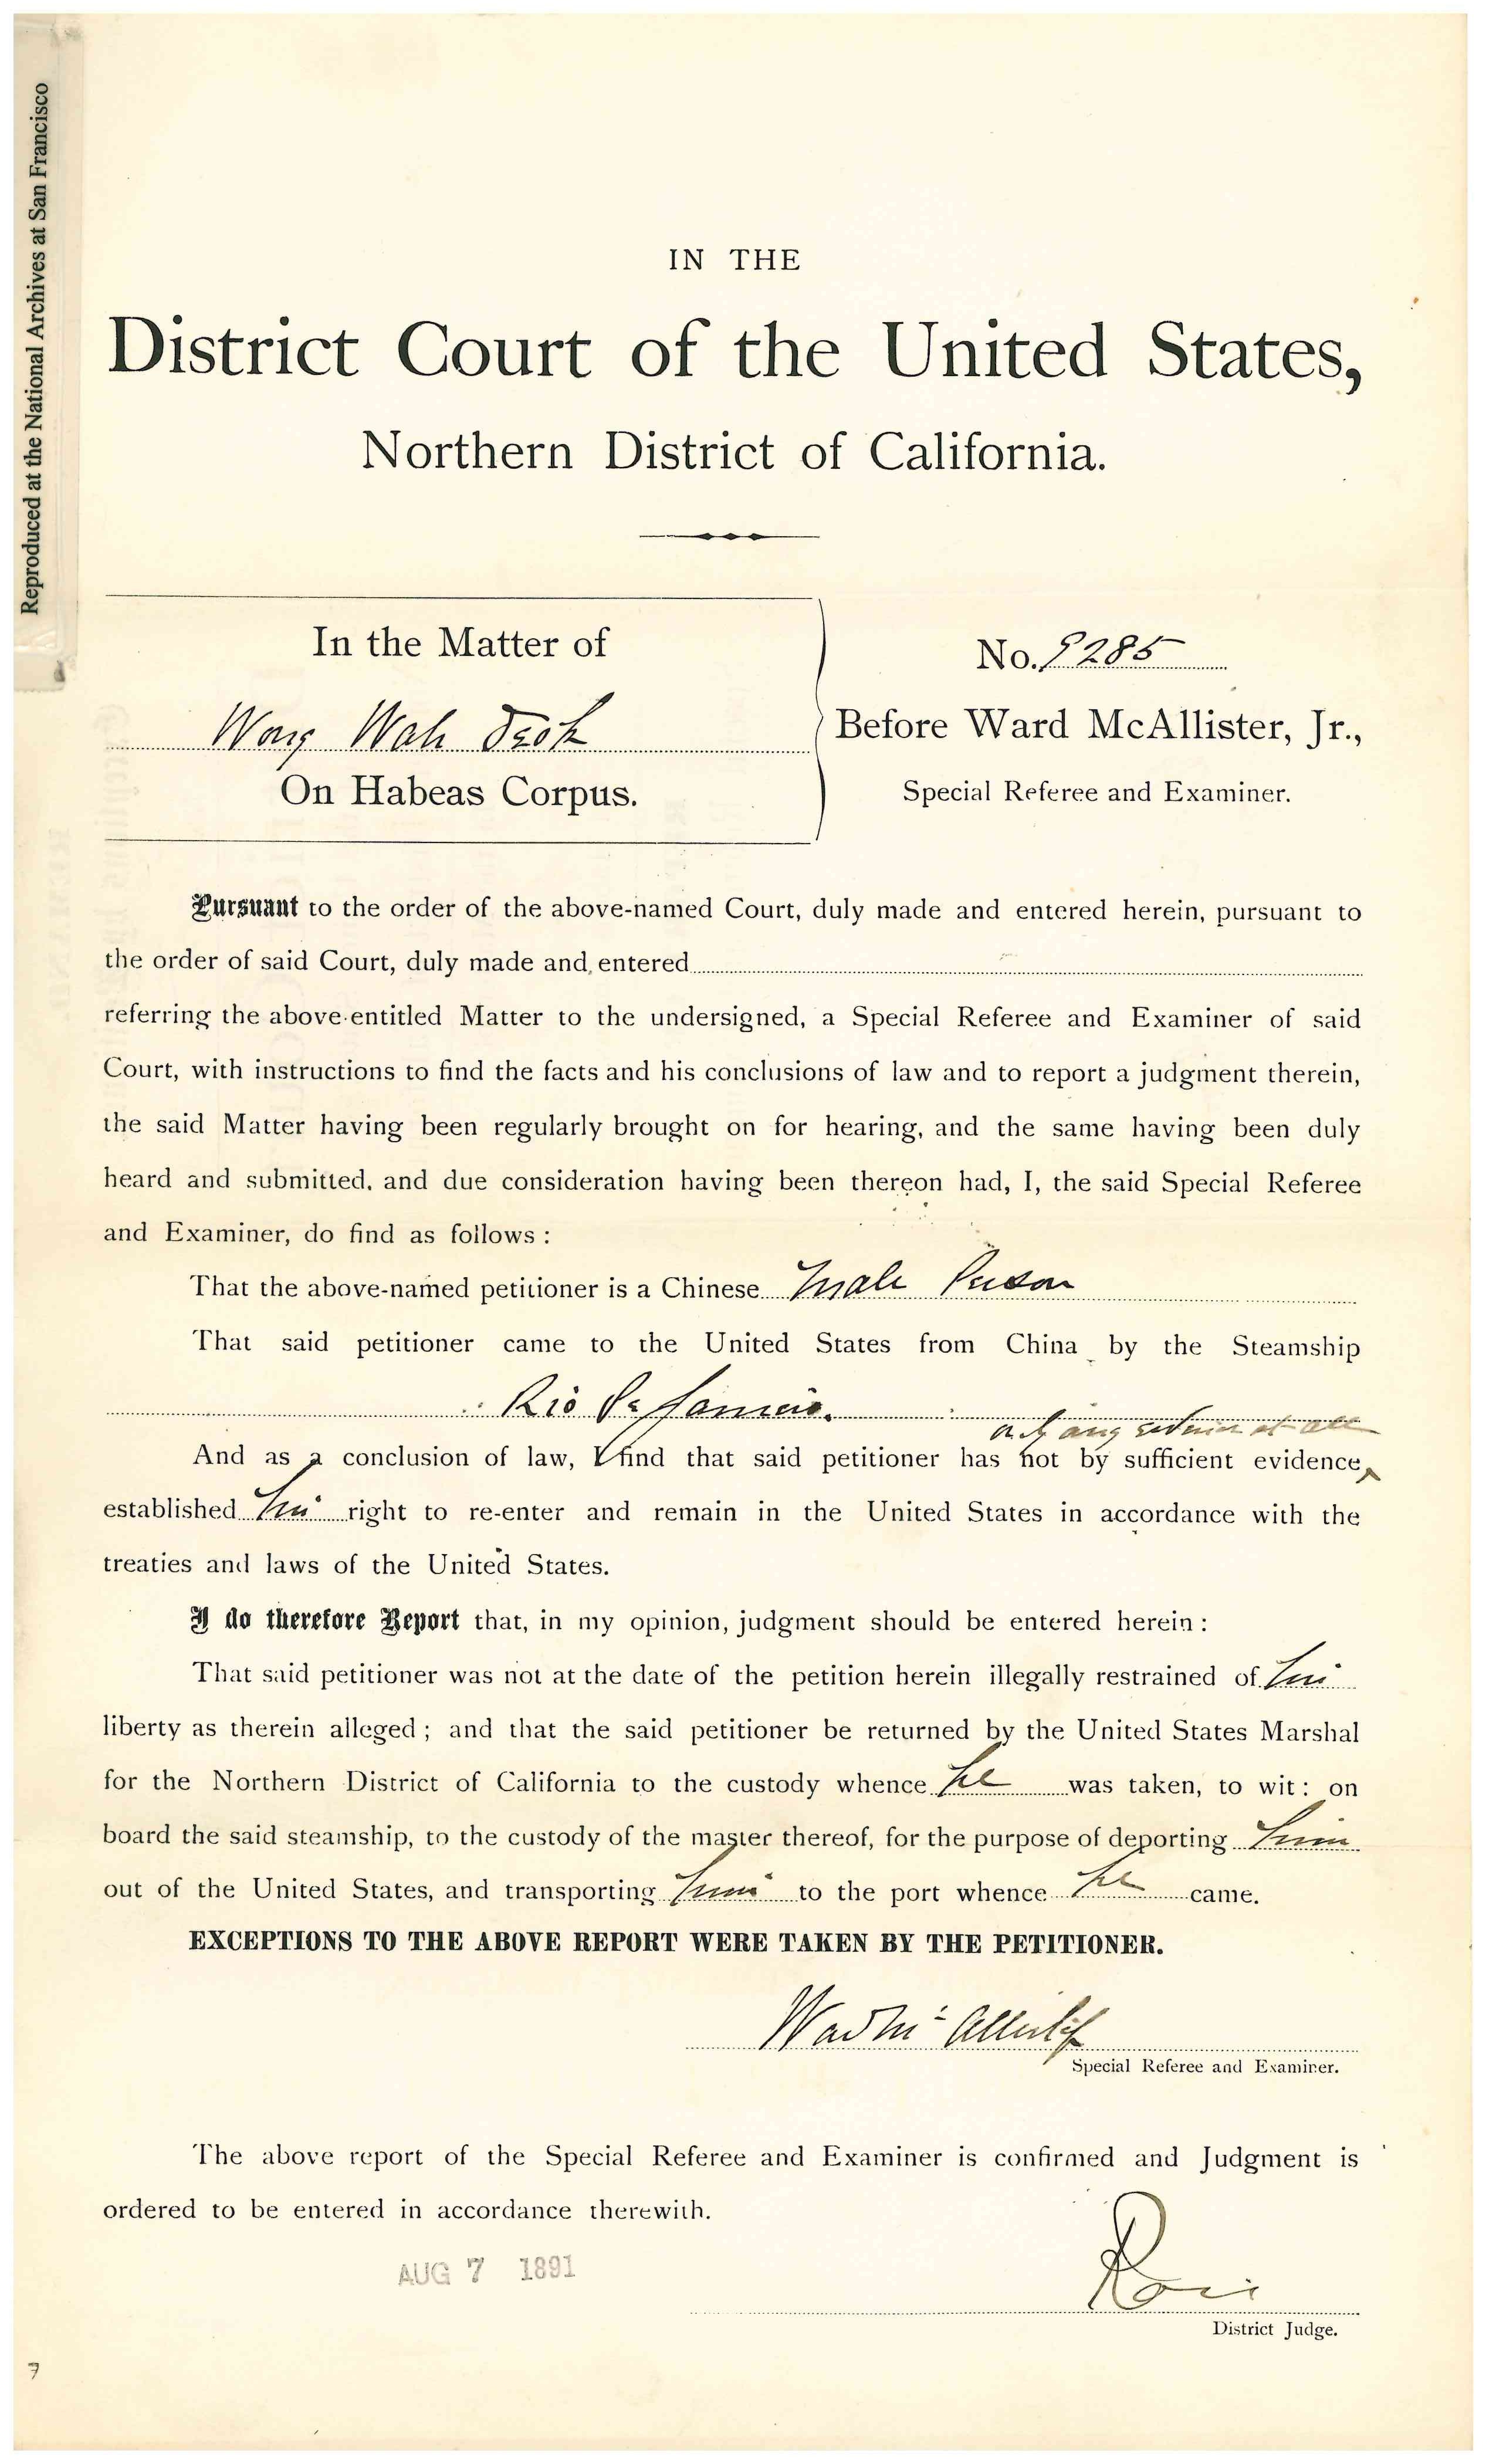 Reproduced at the National Archives at San Francisco
IN THE
District Court of the United States,
Northern District of California.
In the Matter of
Wong Wah
On Habeas Corpus.
No. 9285
Before Ward McAllister, Jr.,
Special Referee and Examiner.
Pursuant to the order of the above-named Court, duly made and entered herein, pursuant to
the order of said Court, duly made and entered
referring the above-entitled Matter to the undersigned, a Special Referee and Examiner of said
Court, with instructions to find the facts and his conclusions of law and to report a judgment therein,
the said Matter having been regularly brought on for hearing, and the same having been duly
heard and submitted, and due consideration having been thereon had, I, the said Special Referee
and Examiner, do find as follows :
That the above-named petitioner is a Chinese Male Person
That said petitioner came to the United States from China by the Steamship
Rio de Janeiro.
or by any evidence at all
And as a conclusion of law, I find that said petitioner has not by sufficient evidence
established his right to re-enter and remain in the United States in accordance with the
treaties and laws of the United States.
I do therefore Report that, in my opinion, judgment should be entered herein :
That said petitioner was not at the date of the petition herein illegally restrained of his
liberty as therein alleged ; and that the said petitioner be returned by the United States Marshal
for the Northern District of California to the custody whence he was taken, to wit : on
board the said steamship, to the custody of the master thereof, for the purpose of deporting him
out of the United States, and transporting him to the port whence he came.
EXCEPTIONS TO THE ABOVE REPORT WERE TAKEN BY THE PETITIONER.
Ward McAllister Jr
Special Referee and Examiner.
The above report of the Special Referee and Examiner is confirmed and Judgment is
ordered to be entered in accordance therewith.
AUG 7 1891
District Judge.
7